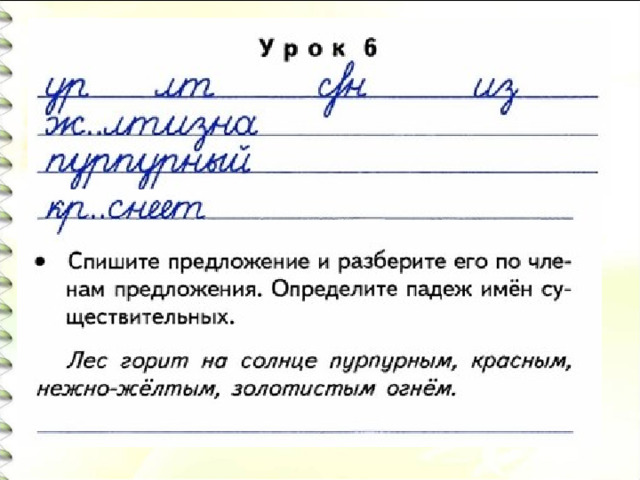 Урок 6
ур лт сн из
ж..лтизна
пурпурный
кр..снеет
• Спишите предложение и разберите его по чле-
нам предложения. Определите падеж имён су-
ществительных.
Лес горит на солнце пурпурным, красным,
нежно-жёлтым, золотистым огнём.